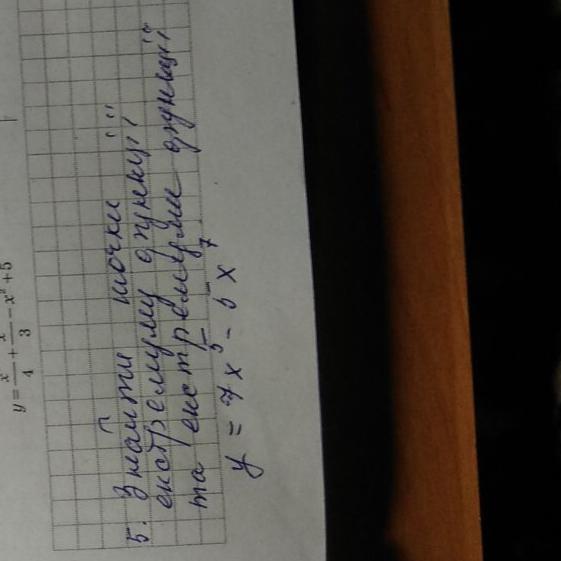 y = x/4 + x/3 − x² + 5
5. Знайти точки
екстремуму функції
та екстремуми функції
y = 7x⁵ − 5x⁷